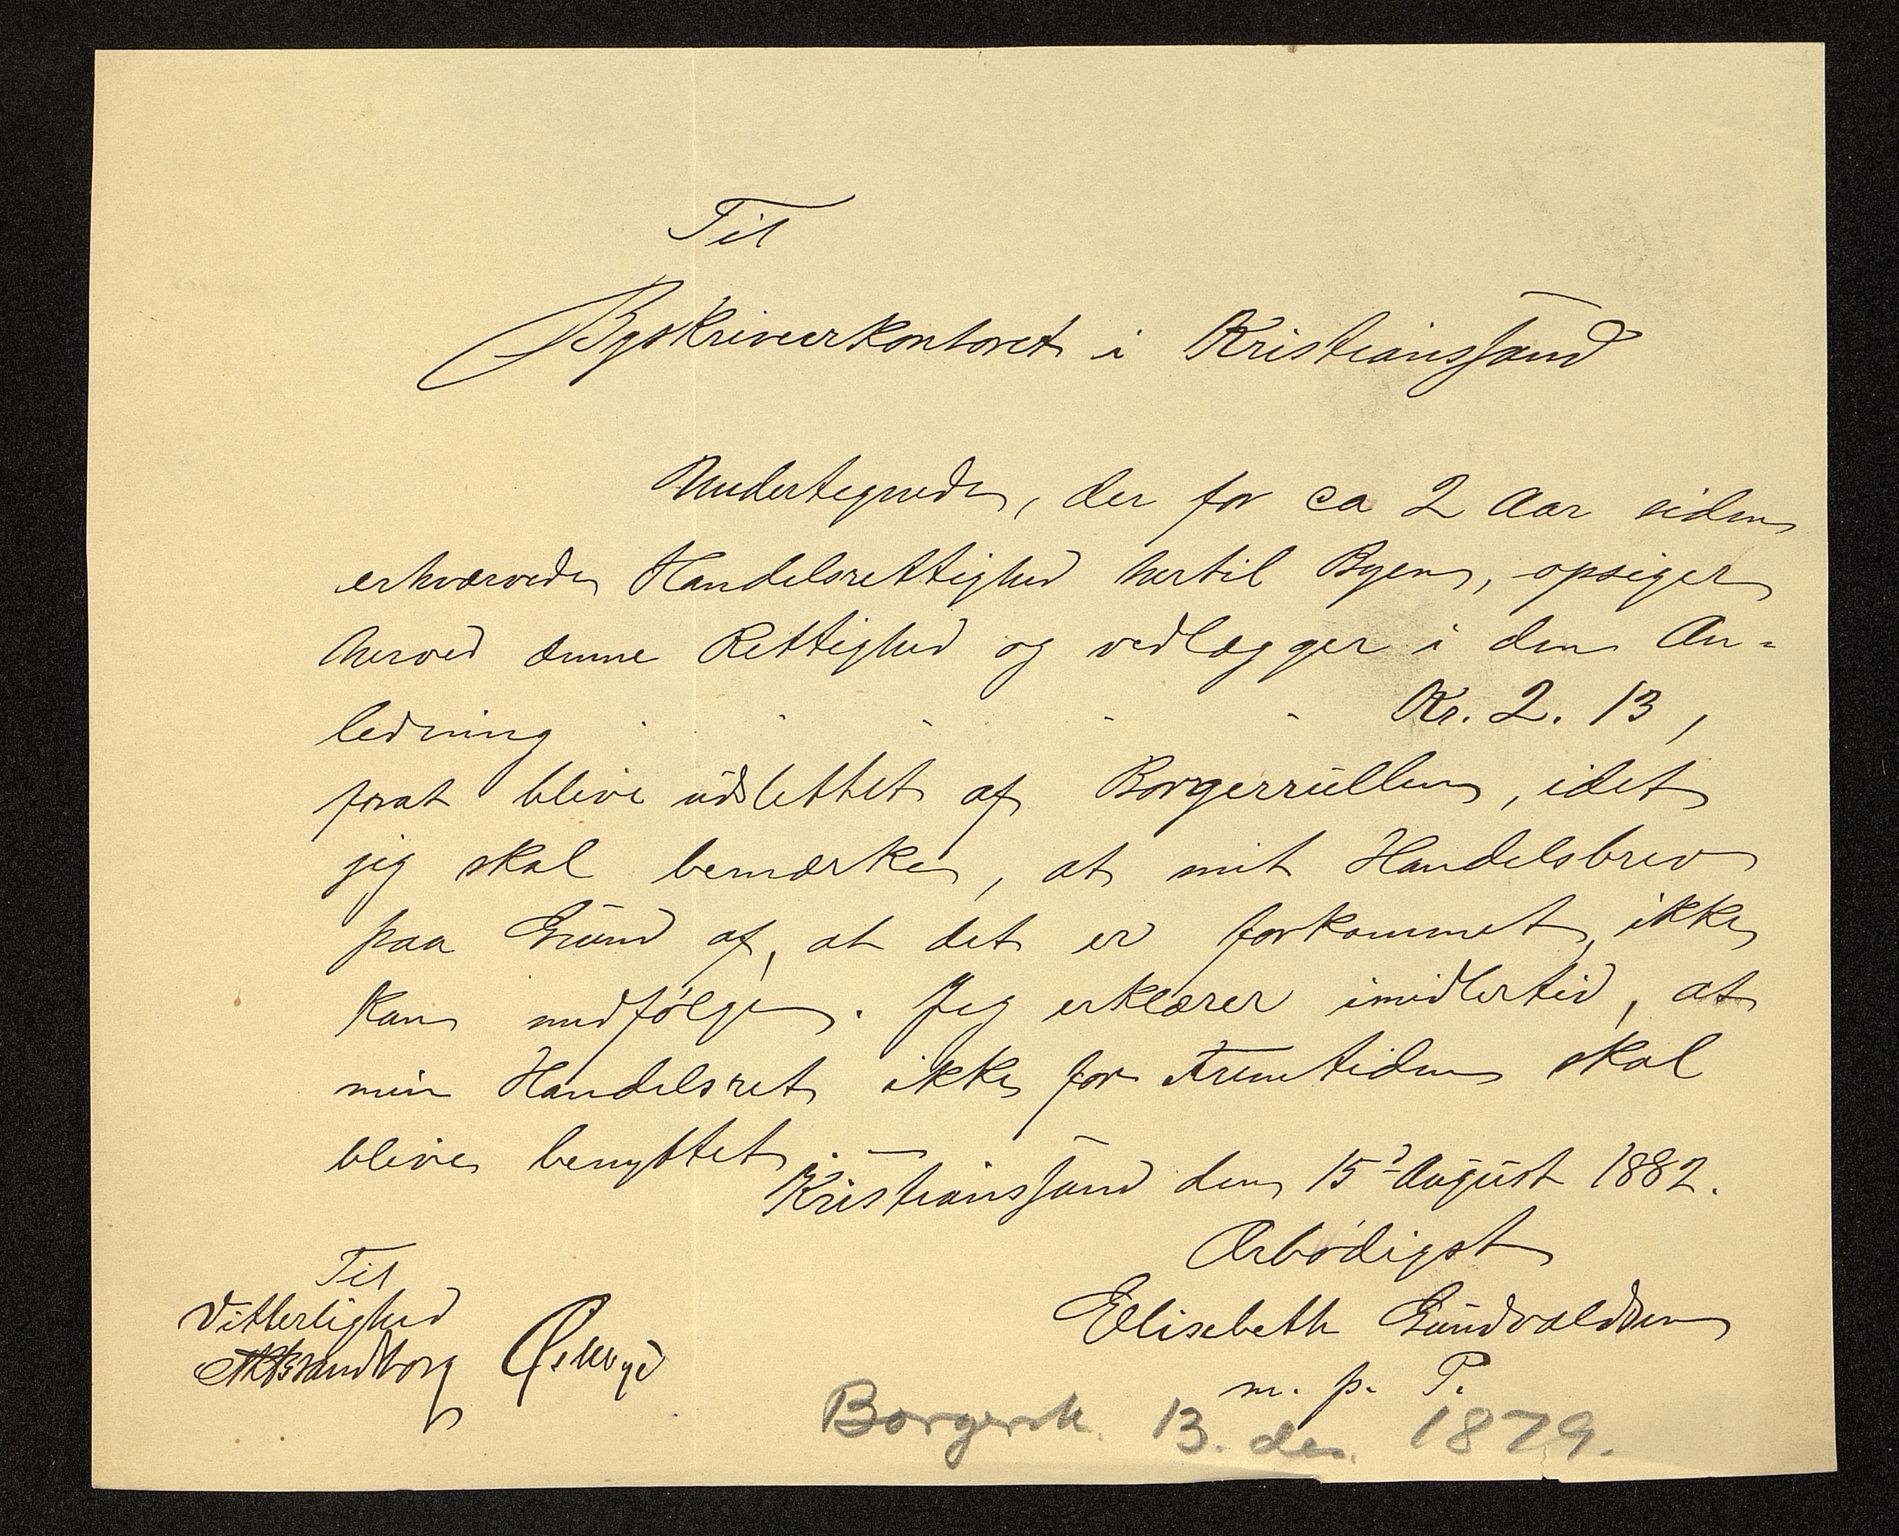 Til
Byskriverkontoret i Kristianssand
Undertegnede, der for ca 2 Aar siden
erhvervede Handelsrettighed hertil Byen, opsiger
herved denne Rettighed og vedlægger i den An-
ledning - - - - - Kr. 2. 13,
forat blive udslettet af Borgerrullen, idet
jeg skal bemærke, at mit Handelsbrev
paa Grund af, at det er forkommet, ikke
kan medfølge. Jeg erklærer imidlertid, at
min Handelsret ikke for Fremtiden skal
blive benyttet.
Kristianssand den 15' August 1882.
Ærbødigst
Elisebeth Gundvaldsen
m. p. P.
Til
Vitterlighed
Borgersk. 13. des. 1879.